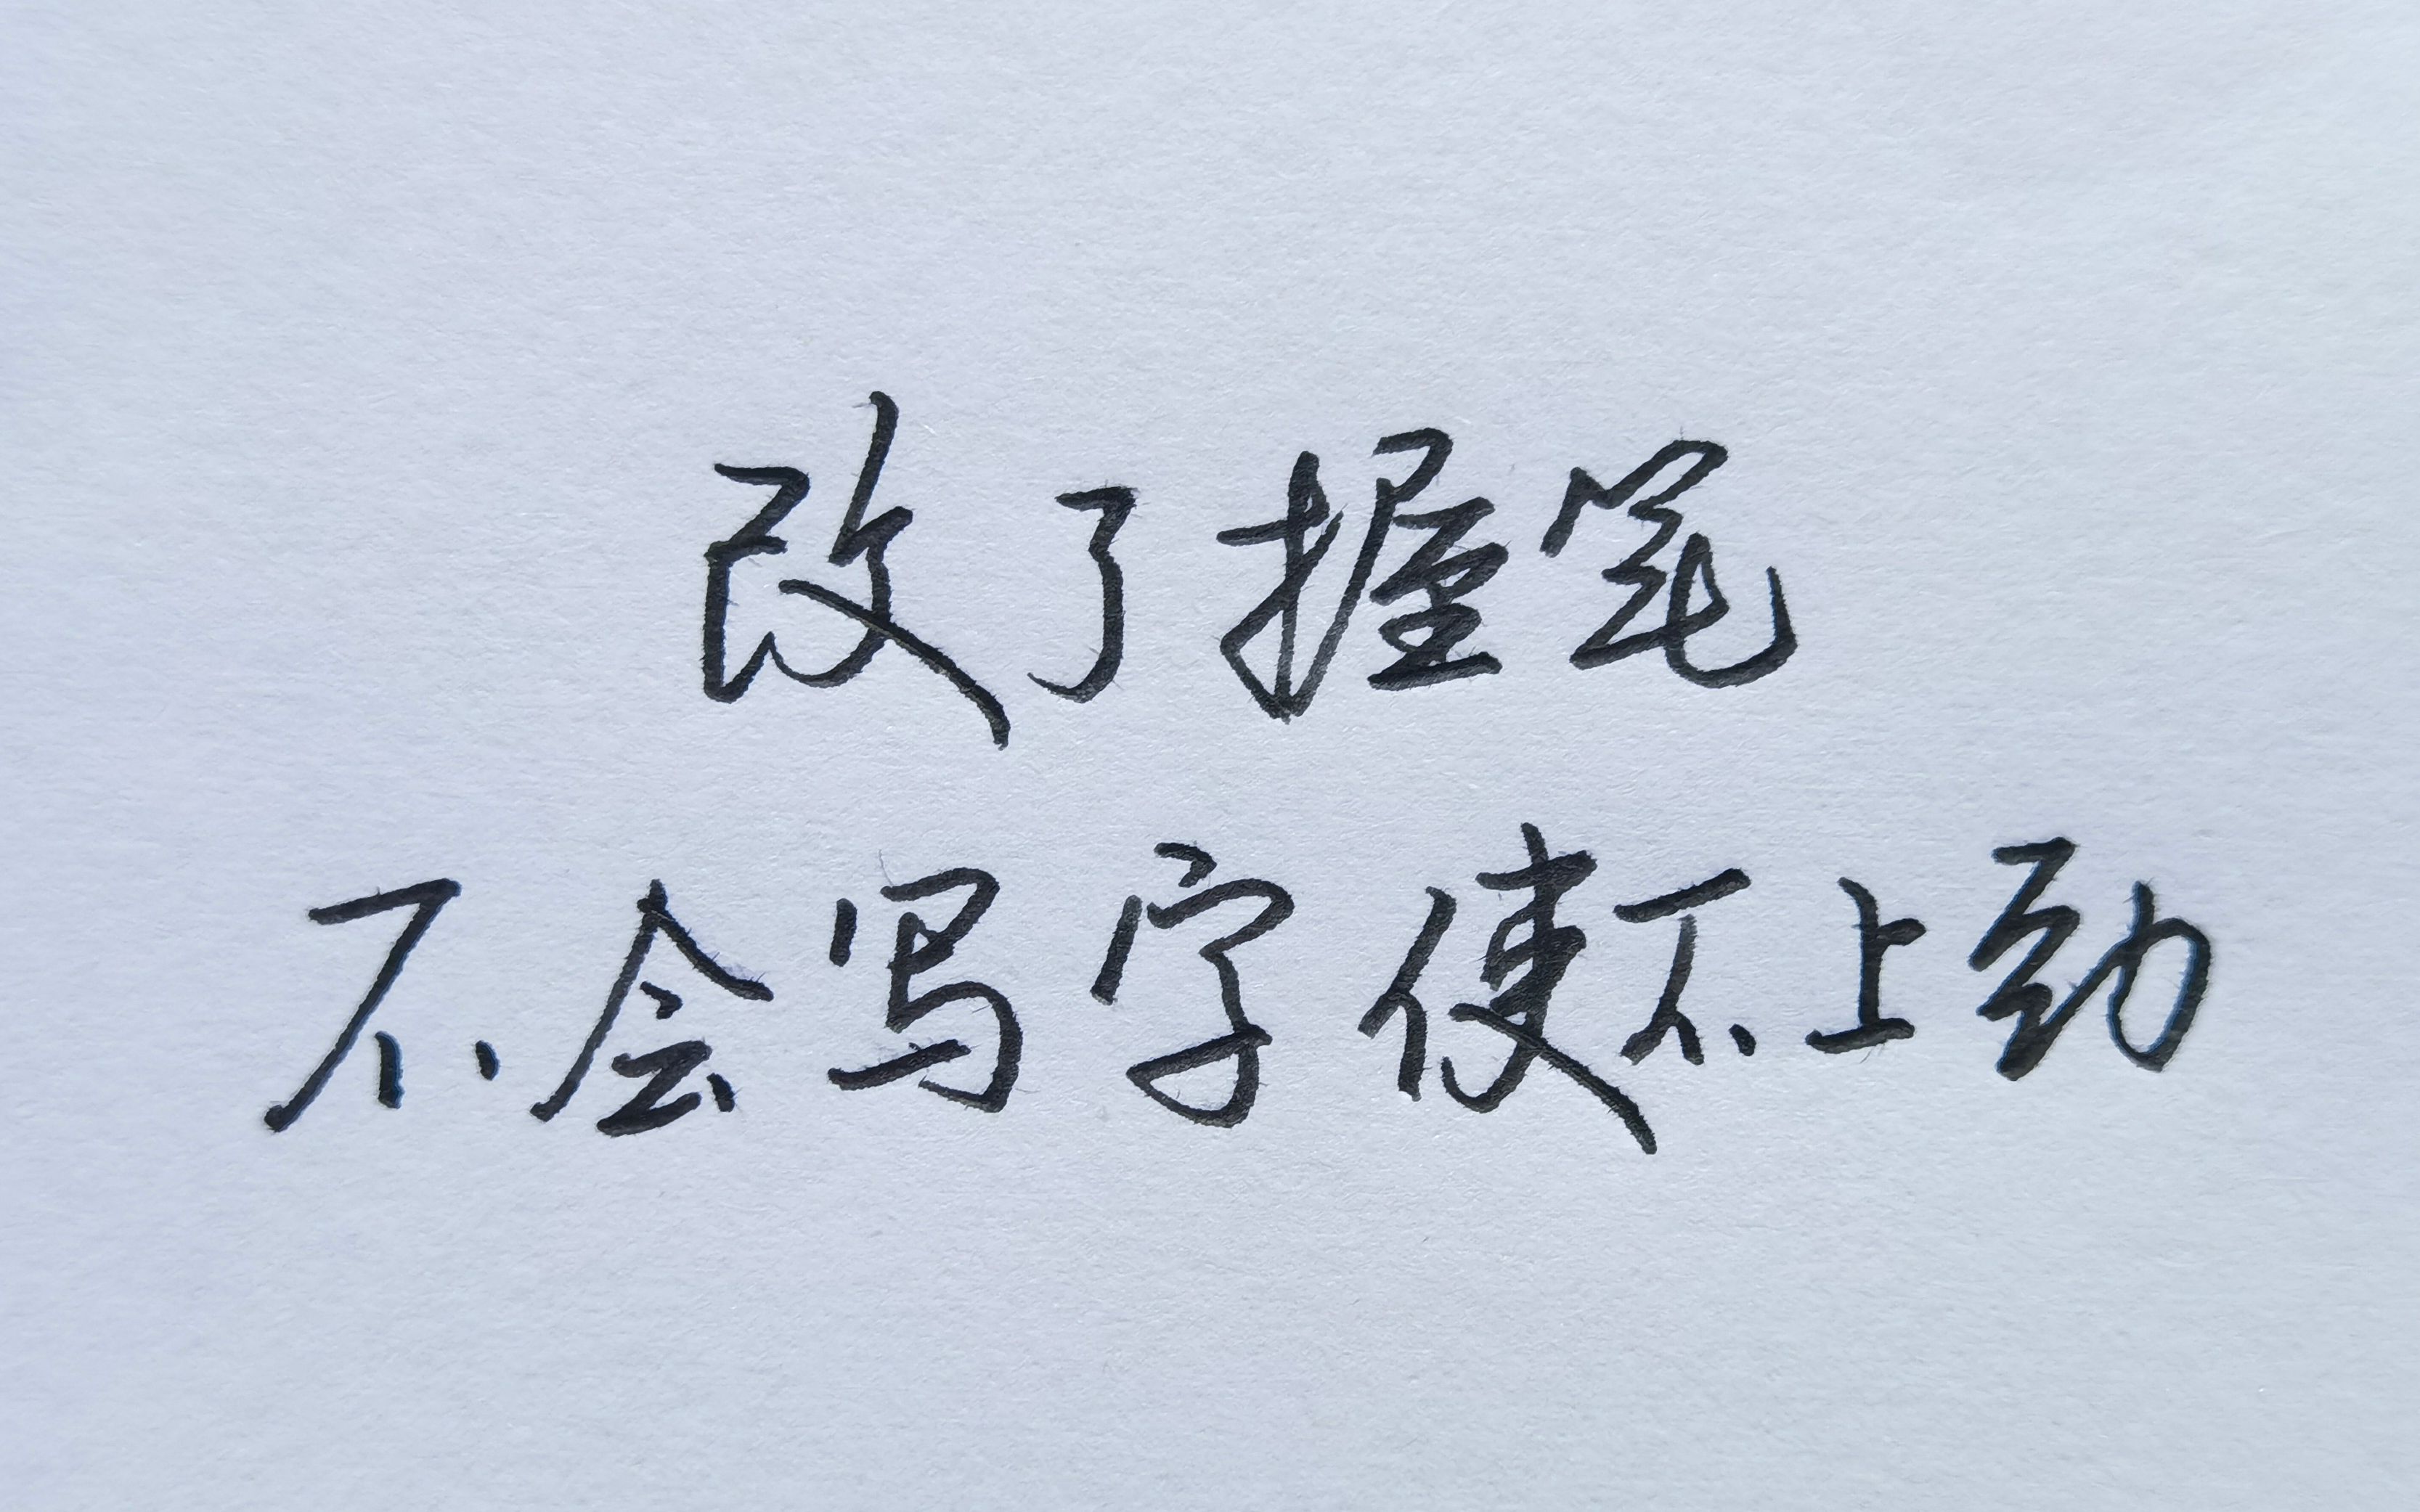 改了握笔
不会写字使不上劲